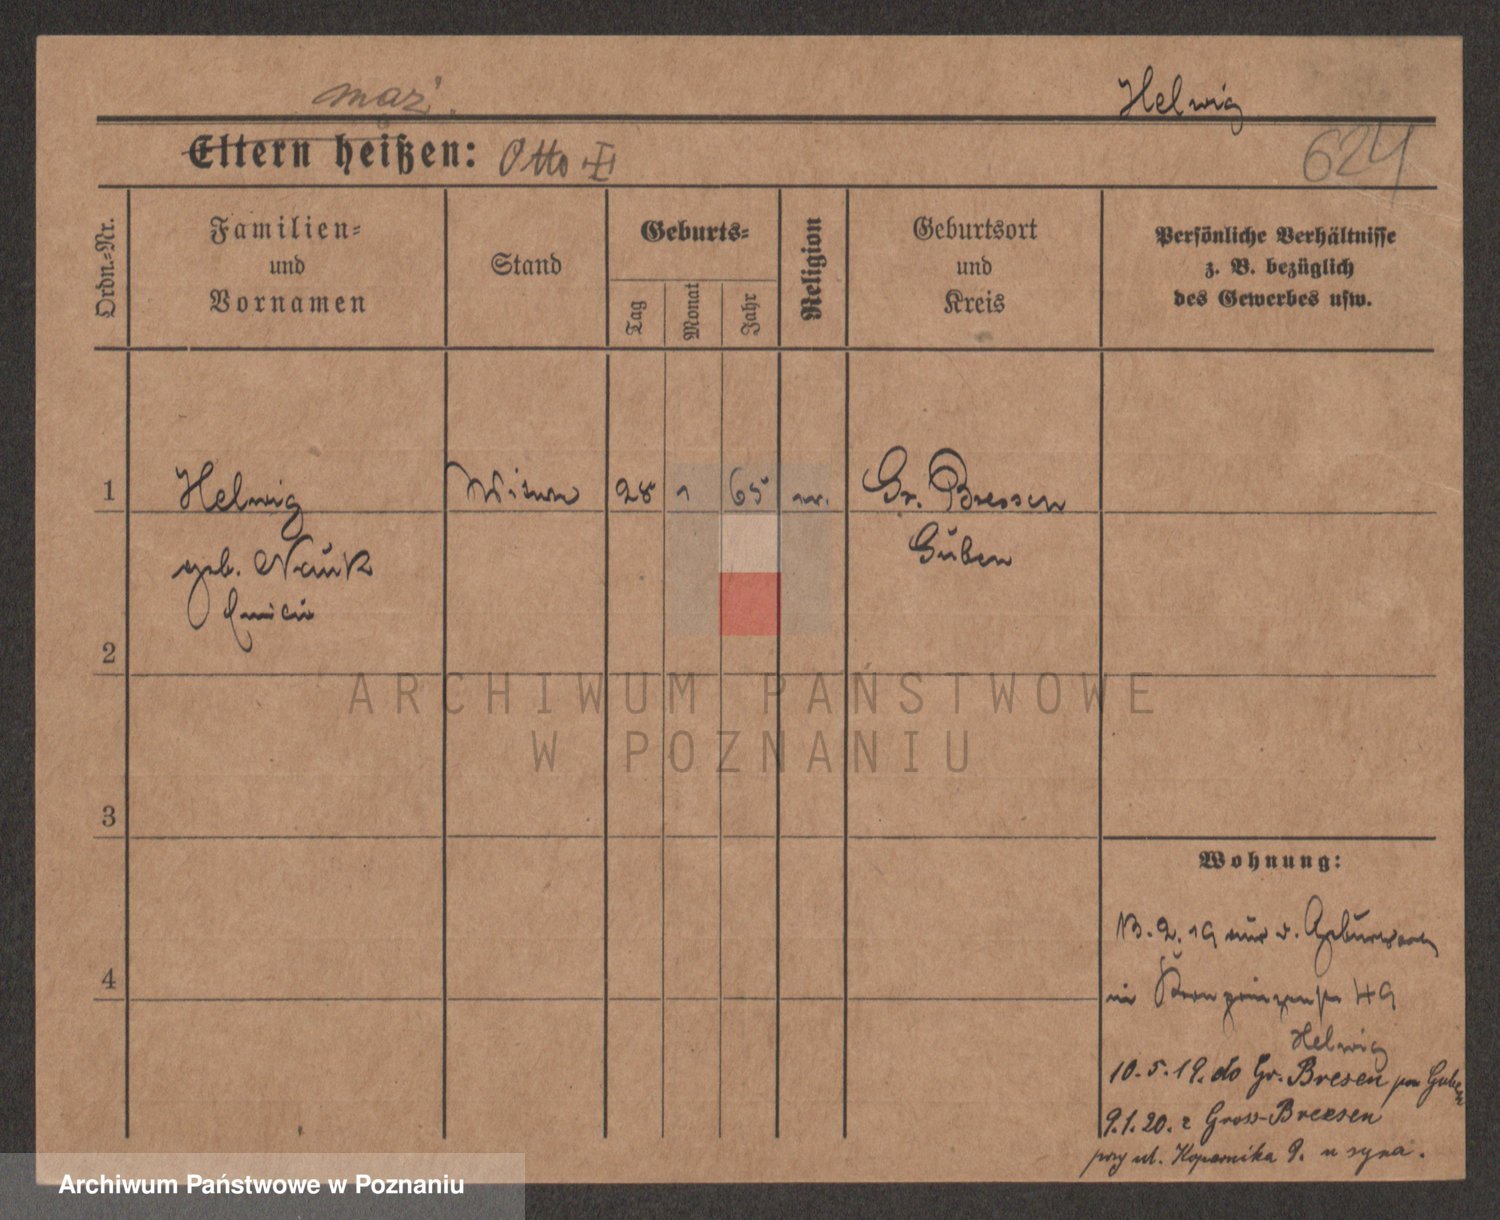 mąż.
Helwig
Eltern heißen: Otto I
624
Ordn.-Nr.
Familien-
und
Vornamen
Stand
Geburts-
Tag
Monat
Jahr
Religion
Geburtsort
und
Kreis
Persönliche Verhältnisse
z. B. bezüglich
des Gewerbes usw.
1
Helwig
Witwe
28
1
65
Gr. Bressen
geb. Nauk
Guben
2
3
Wohnung:
13. 2. 19
4
Kronprinzenstr 49
Helwig
10. 5. 19. do Gr. Bresen pow Guben
9. 1. 20. z Gross-Breesen
przy ul. Kopernika 9. u syna.
ARCHIWUM PAŃSTWOWE
W POZNANIU
Archiwum Państwowe w Poznaniu